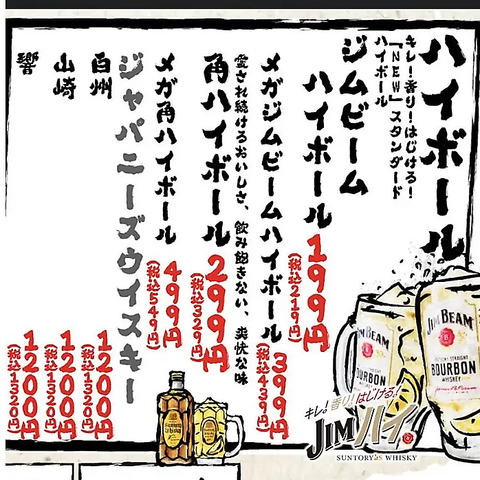 ハイボール
キレ!香り!はじける!
『NEW』スタンダード
ハイボール
ジムビーム
ハイボール 199円
(税込219円)
メガジムビームハイボール 399円
(税込439円)
愛され続けるおいしさ、飲み飽きない、爽快な味
角ハイボール 299円
(税込329円)
メガ角ハイボール 499円
(税込549円)
ジャパニーズウイスキー
白州 1200円
(税込1320円)
山崎 1200円
(税込1320円)
響 1200円
(税込1320円)
JIM BEAM
BOURBON
WHISKEY
JIM BEAM
KENTUCKY STRAIGHT
BOURBON
WHISKEY
キレ!香り!はじける!
JIMハイ。
SUNTORY WHISKY